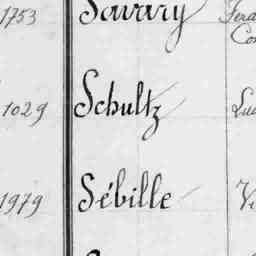 1753 Savary
1029 Schultz
1979 Sébille